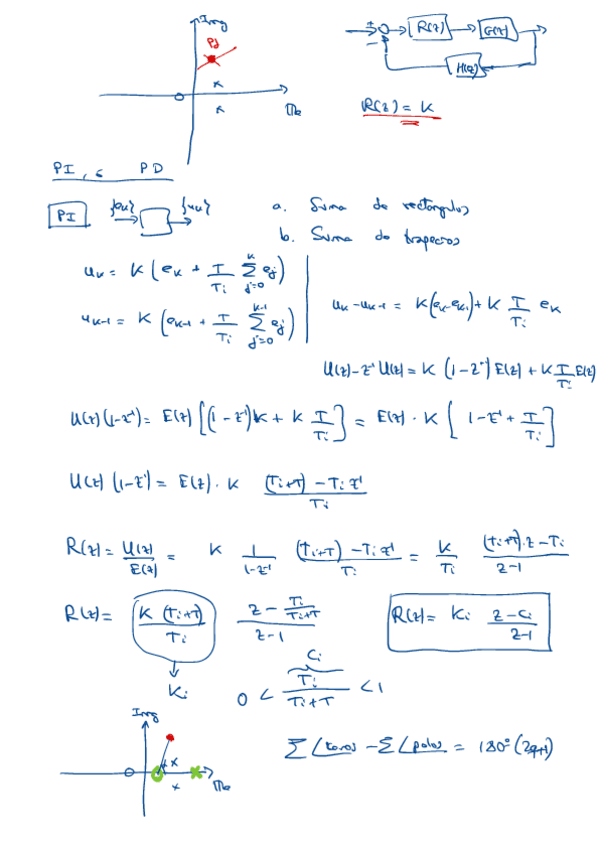 Img
Pd
Re
R(z)
G(z)
H(z)
R(z) = K
PI, ó PD
PI {ek} {uk}
a. Suma de rectángulos
b. Suma de trapecios
uk = K (ek + T/Ti Σ_{j=0}^{k} ej)
uk-1 = K (ek-1 + T/Ti Σ_{j=0}^{k-1} ej)
uk - uk-1 = K(ek-ek-1) + K T/Ti ek
U(z) - z⁻¹ U(z) = K (1-z⁻¹) E(z) + K T/Ti E(z)
U(z) (1-z⁻¹) = E(z) [(1-z⁻¹)K + K T/Ti] = E(z) · K [1-z⁻¹ + T/Ti]
U(z) (1-z⁻¹) = E(z) · K (Ti+T) - Ti z⁻¹ / Ti
R(z) = U(z)/E(z) = K 1/(1-z⁻¹) (Ti+T) - Ti z⁻¹ / Ti = K/Ti (Ti+T)·z - Ti / z-1
R(z) = K (Ti+T) / Ti z - Ti/(Ti+T) / z-1
R(z) = Ki z-Ci / z-1
Ki
Ci
0 < Ti / Ti+T < 1
Img
Re
Σ∠ceros - Σ∠polos = 180° (2q+1)